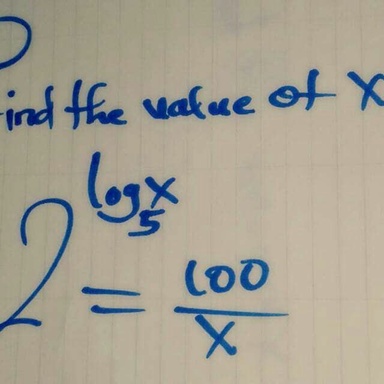 ind the value of X
2^log_5 x = 100/x